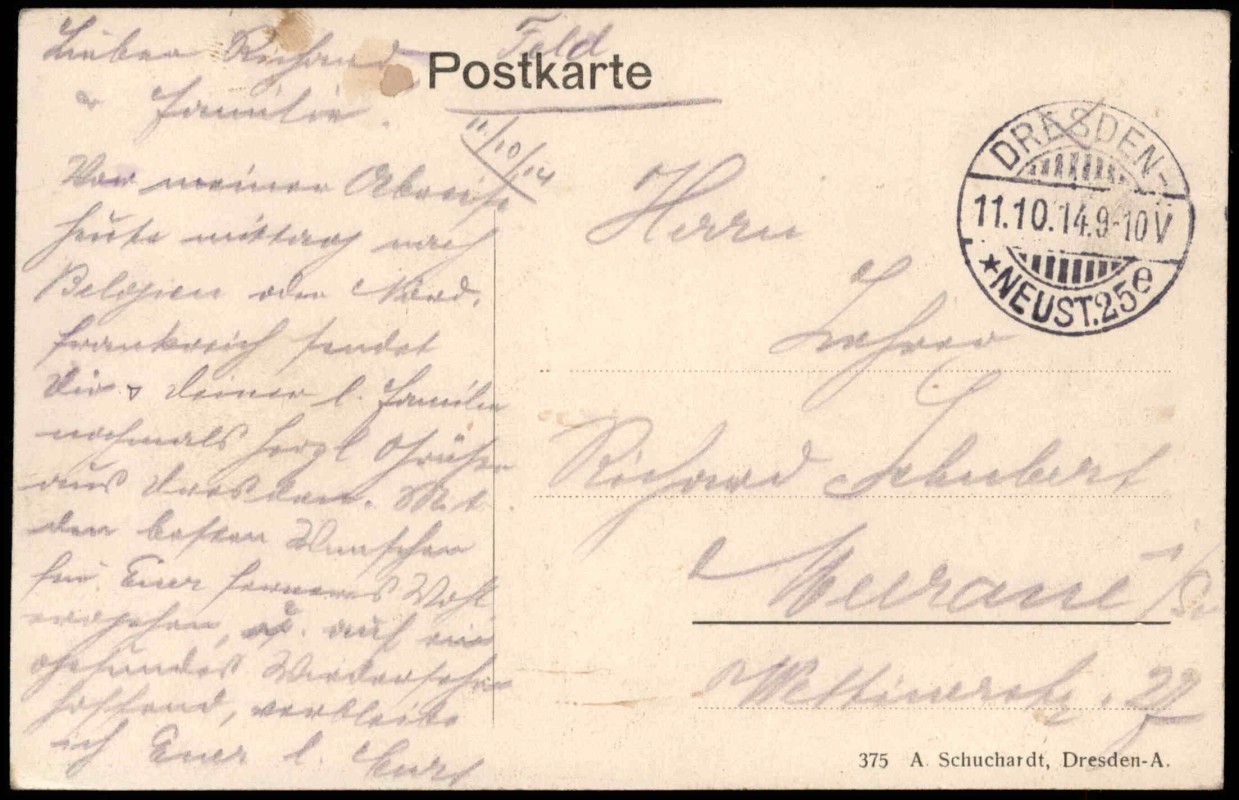 Feld
Postkarte
11/10/14
Lieber Richard
& Familie.
Vor meiner Abreise
heute mittag nach
Belgien oder Nord.
frankreich sendet
Dir & Deiner l. Familie
nochmals herzl Grüße
aus Dresden. Mit
den besten Wünschen
für Euer ferneres Wohl
ergehen, u. auf ein
gesundes Wiedersehn
hoffend, verbleibe
ich Euer l. Curt
DRESDEN-
11.10.14.9-10V
*NEUST.25e
Herrn
Lehrer
Richard Schubert
Meerane i/Sa
Wettinerstr. 27
375 A. Schuchardt, Dresden-A.